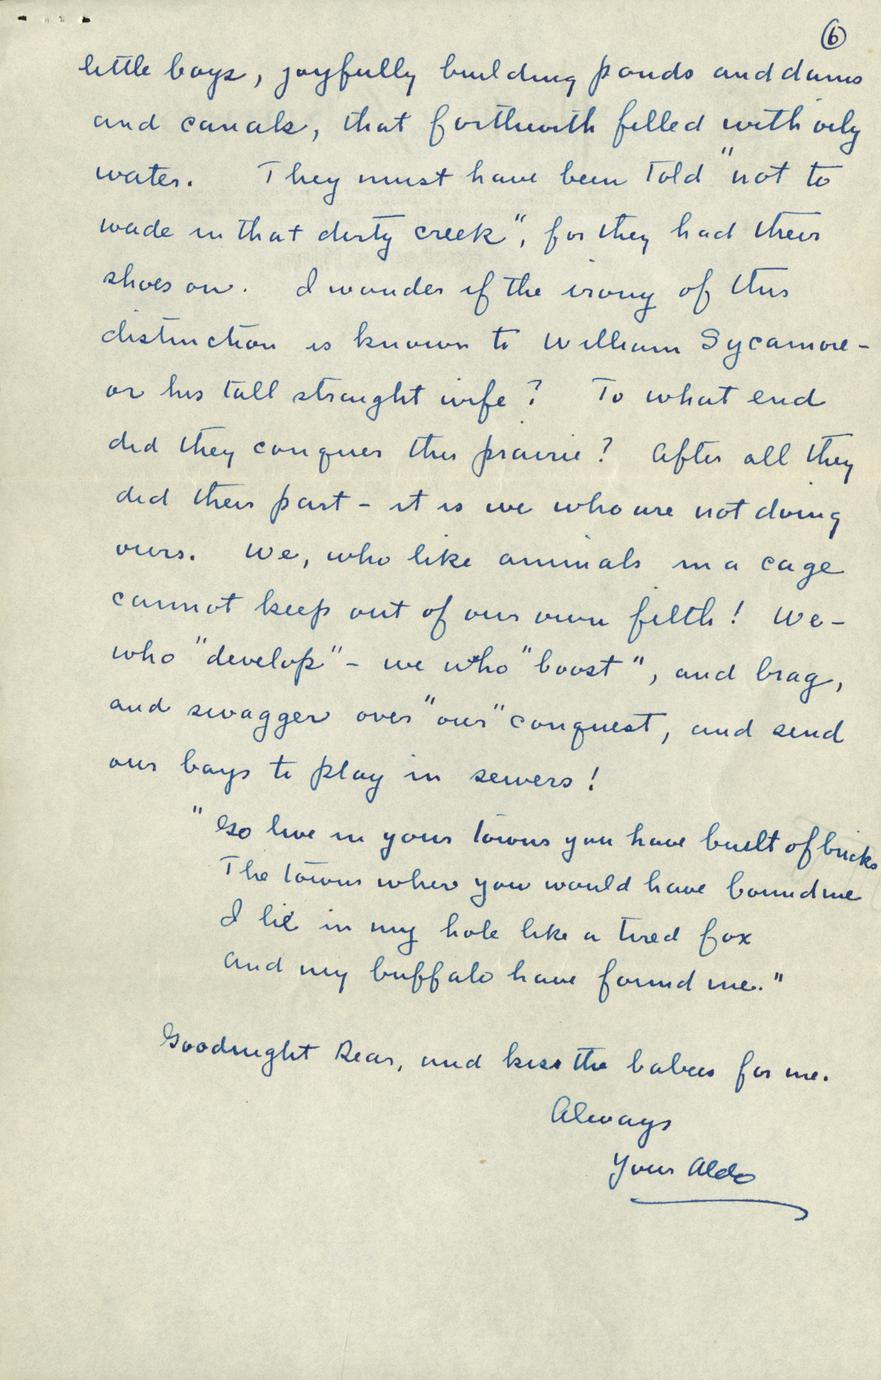 6
little boys, joyfully building ponds and dams
and canals, that forthwith filled with oily
water. They must have been told "not to
wade in that dirty creek", for they had their
shoes on. I wonder if the irony of this
distinction is known to William Sycamore -
or his tall straight wife? To what end
did they conquer this prairie? After all they
did their part - it is we who are not doing
ours. We, who like animals in a cage
cannot keep out of our own filth! We -
who "develop" - we who "boost", and brag,
and swagger over "our" conquest, and send
our boys to play in sewers!
"Go live in your towns you have built of bricks
The towns where you would have bound me
I lie in my hole like a tired fox
And my buffalo have found me."
Goodnight Dear, and kiss the babies for me.
Always
Your Aldo